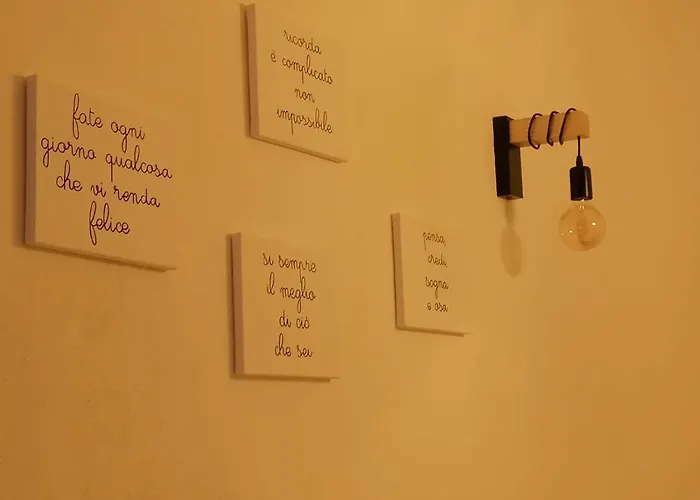 fate ogni
giorno qualcosa
che vi renda
felice
ricorda
è complicato
non
impossibile
si sempre
il meglio
di ciò
che sei
pensa,
credi,
sogna
e osa